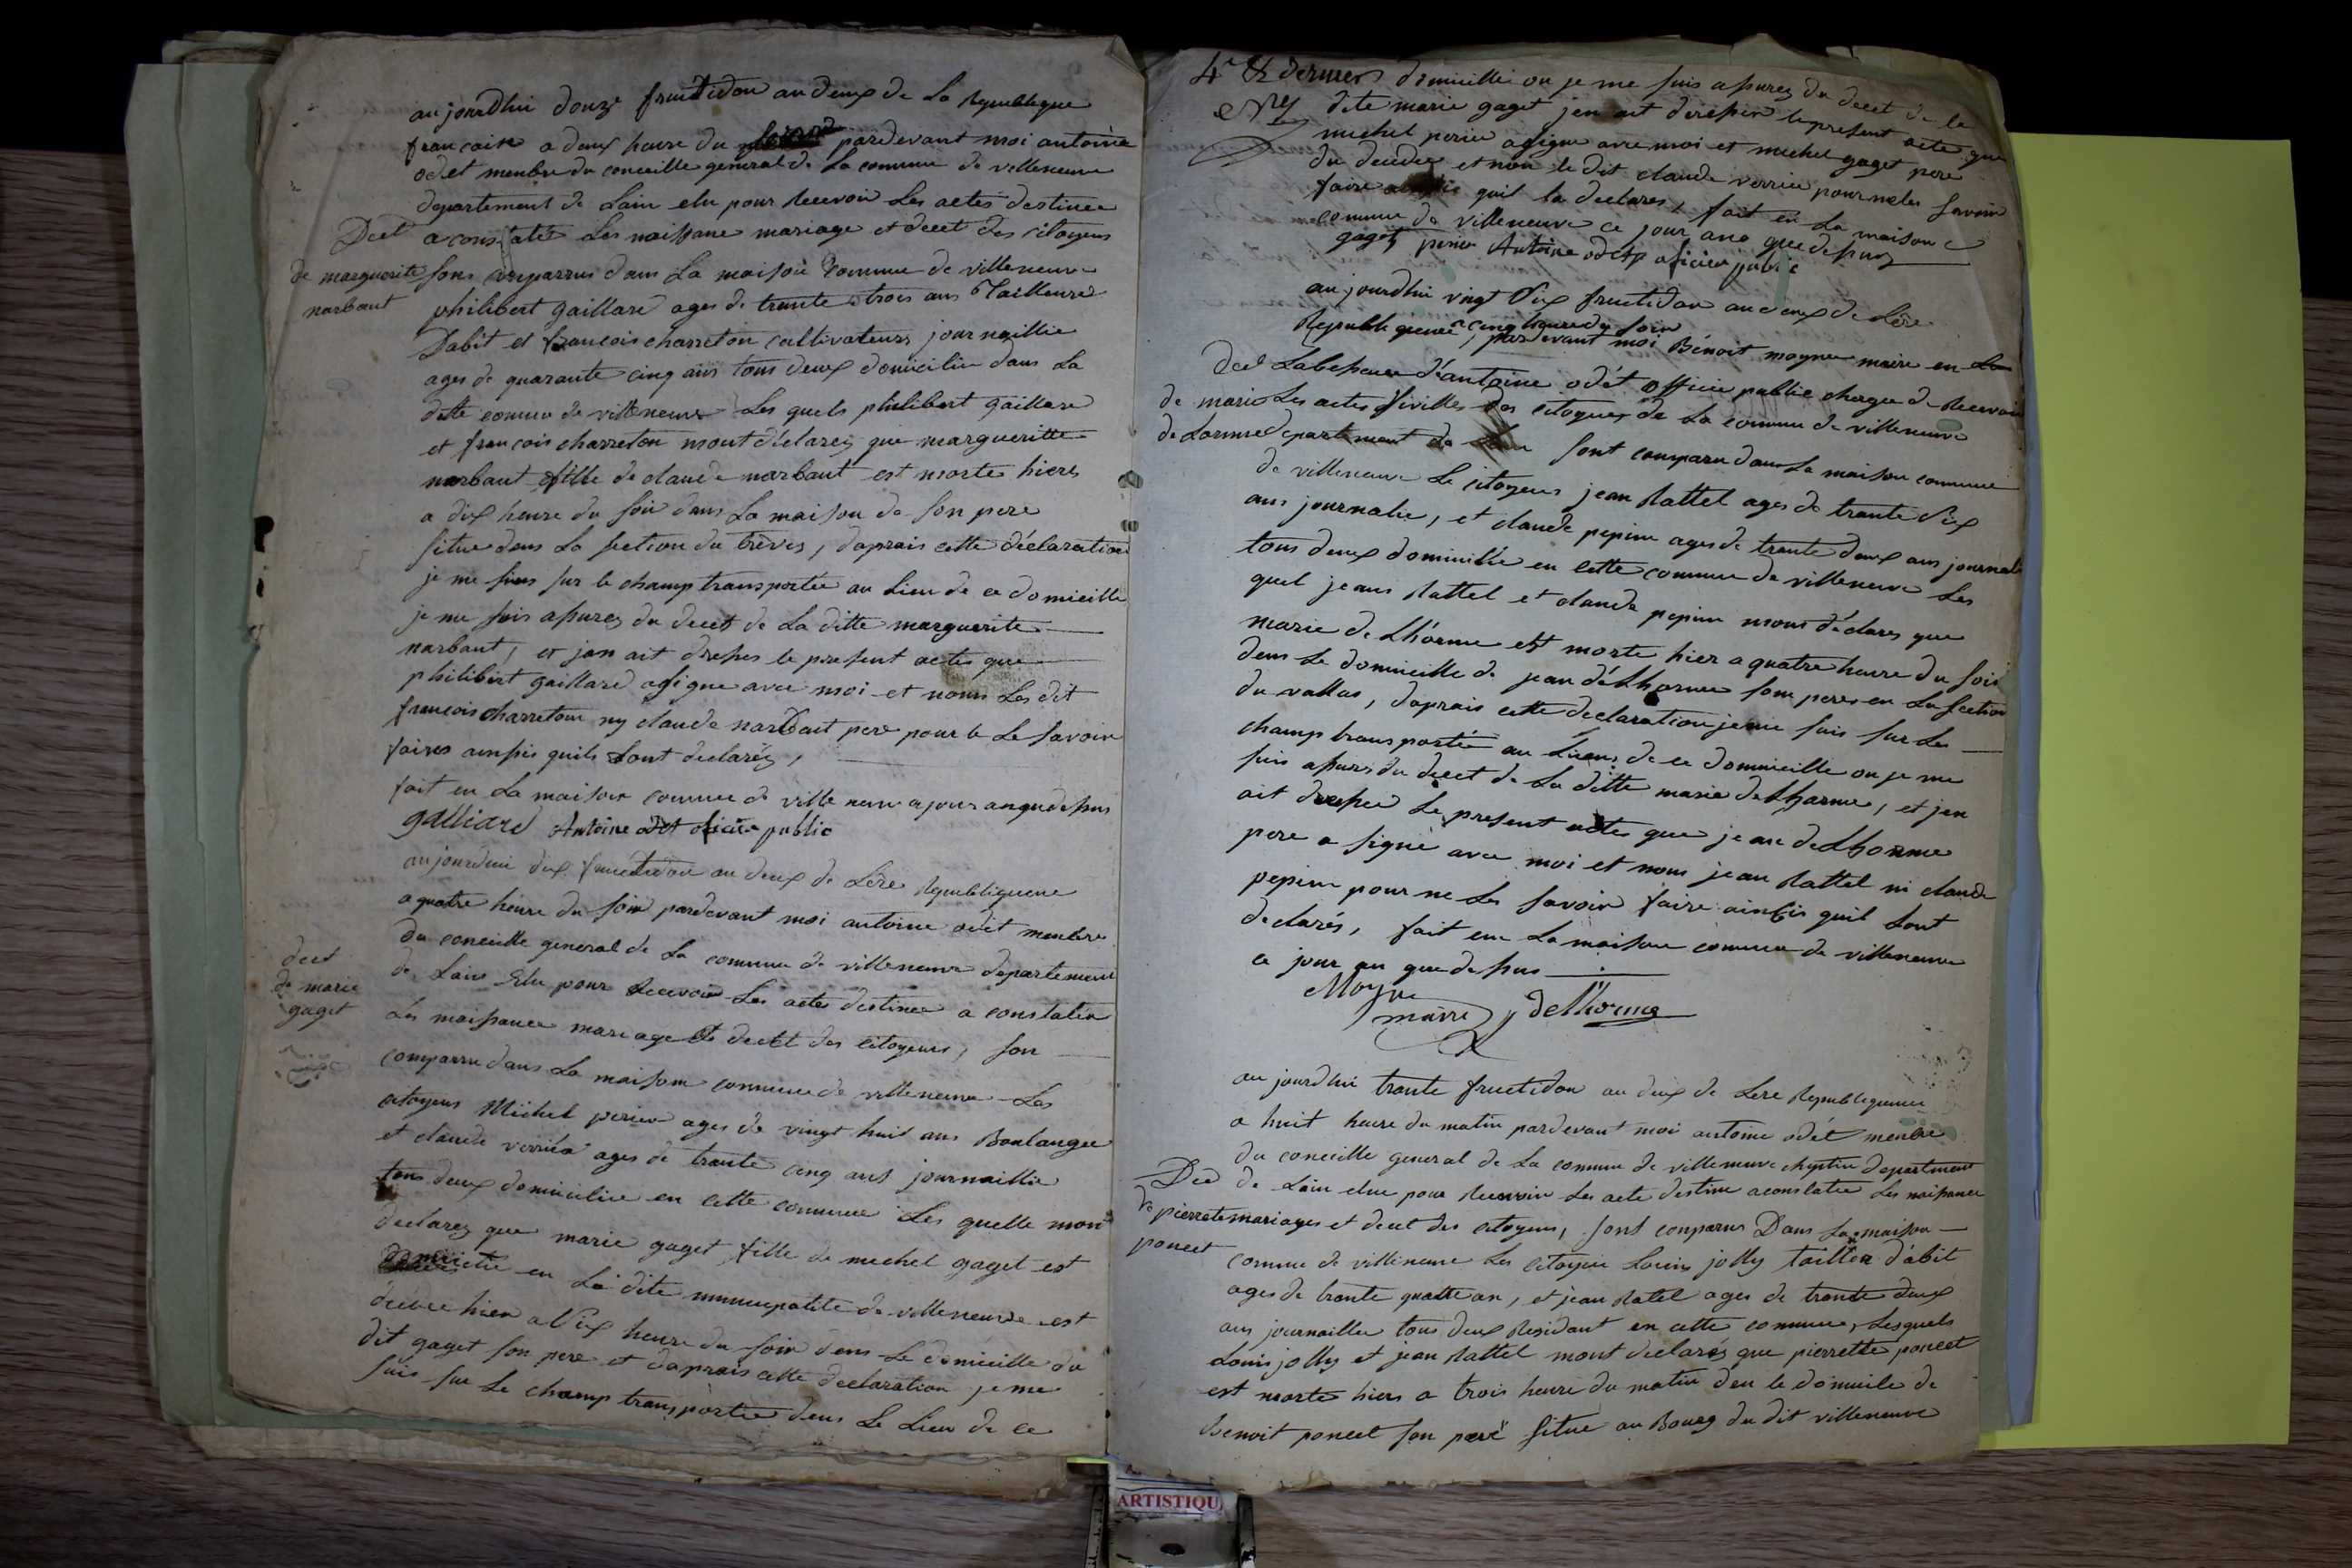 aujourdhui douze fructidor an deux de La Republique
francaise a deux heure du pardevant moi antoine
odet menbre du conceille general de La commune de villeneuve
departement de Lain elu pour Recevoir Les actes destinee
Decet
de marguerite
narbaut
a constatée Les naissance mariage et decet des citoyens
sons comparrus dans La maison commune de villeneuve
philibert gaillard ages de trante trois ans Tailleure
Dabit et francois charreton cultivateurs journaillie
ages de quarante cinq ans tous deux domicilie dans La
ditte commune de villeneuve Les quels philibert gaillard
et francois charreton mont déclarez que margueritte
narbaut fille de claude narbaut est morte hiers
a dix heure du soir dans La maison de son pere
situe dens La section du trèves, daprais cette déclaration
je me suis sur le champ transportée au Lieu de ce domicille
je me suis assurez du decet de La ditte marguerite
narbaut, et jan ait dresses le present actes que
philibert gaillard asigne avec moi et nonn Les dit
francois charreton ny claude narbaut pere pour le Le savoir
faires ainsis quils Lont declaréz,
fait en La maison commune de ville neuve ajour anquedessus
galliard Antoine odet oficier public
aujourdui dix fructidor an deux de Lère Republiquene
a quatre heure du soir pardevant moi antoine odet menbre
du conceille general de La commune de villeneuve departement
decet
de marie
gaget
de Lain Elu pour Recevoir Les actes destinee a constatée
Les naissance mariage Et decet des citoyens, son
comparru dans La maison commune de villeneuve Les
citoyens Michel perier ages de vingt huit ans Boulanger
et claude verrier ages de trante cinq ans journaillie
tous deux domicilie en cette commune Les quelle mon
declarez que marie gaget fille de michel gaget est
en La dite municipalite de villeneuve est
decee hier a Six heure du soir dens Le domicille du
dit gaget son pere et daprais cette declaration je me
suis sur Le champ transportée dens Le Lieu de ce
4e & dernier domicille ou je me suis assurez du decet de la
dite marie gaget jen ait dresser le present acte que
michel perier asigne avec moi et michel gaget pere
du decedee et non le dit claude verrier pour ne les savoir
faire ainsie quil la declares, fait en La maison
commune de villeneuve ce jour ans que dessus
gaget perier Antoine odet oficier public
aujourdhui vingt Six fructidor an deux de Lère
Republiquene a cinq heure du soir, pardevant moi Bénoit moyne maire en
Decet
de marie
de Lorme
Labsence d'antoine odét officie public charge de Recevoir
Les actes sivilles des citoyens de La commune de villeneuve
departement de Lain sont comparu dans La maison commune
de villeneuve Le citoyens jean Rattel ages de trante Six
ans journalie, et claude pepin ages de trante deux ans journali
tous deux domicillie en cette commune de villeneuve Les
quel jeans Rattel et claude pepin mont déclares que
marie de Lhorme est morte hier a quatre heure du soir
dens Le domicille de jean déLhorme son peres en La section
du vallas, daprais cette declaration je me suis sur Le
champ transportée au Lieu de ce dommicille ou je me
suis assures du decet de La ditte marie deLhorme, et jen
ait dressee Le present actes que jean deLhorme
pere a signé avec moi et nonn jean Rattel ni claude
pepin pour ne Les savoir faire ainsis quil Lont
declarés, fait en La maison commune de villeneuve
ce jour an que dessus
Moyne
maire delhorme
aujourdhui trante fructidor an deux de Lere Republiquenne
a huit heure du matin pardevant moi antoine odét menbre
du conceille general de La commune de villeneuve departement
Dec
de pierrete
poncet
de Lain elue pour Recevoir Les acte destine a constatée Les naissance
mariages et decet des citoyens, sont conparus Dans La maison
commune de villeneuve Les citoyen Louis jolly tailleur d'abit
ages de trante quatte an, et jean Ratel ages de trante deux
ans journaillie tous deux Residant en cette commune, Lesquels
Louis jolly et jean Rattel mont declarés que pierrette poncet
est morte hiers a trois heure du matin den le domicile de
Benoit poncet son peré situe au Bourg du dit villeneuve
ARTISTIQU